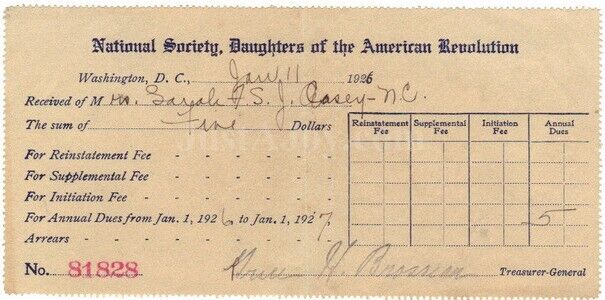 National Society, Daughters of the American Revolution
Washington, D. C., Jan'y 11 1926
Received of M rs. Sarah S. J. Casey - N.C.
The sum of Five Dollars
Reinstatement Fee Supplemental Fee Initiation Fee Annual Dues
For Reinstatement Fee - - - - -
For Supplemental Fee - - - - -
For Initiation Fee - - - - -
For Annual Dues from Jan. 1, 1926 to Jan. 1, 1927 5
Arrears - - - - - - -
No. 81828 H. Treasurer-General